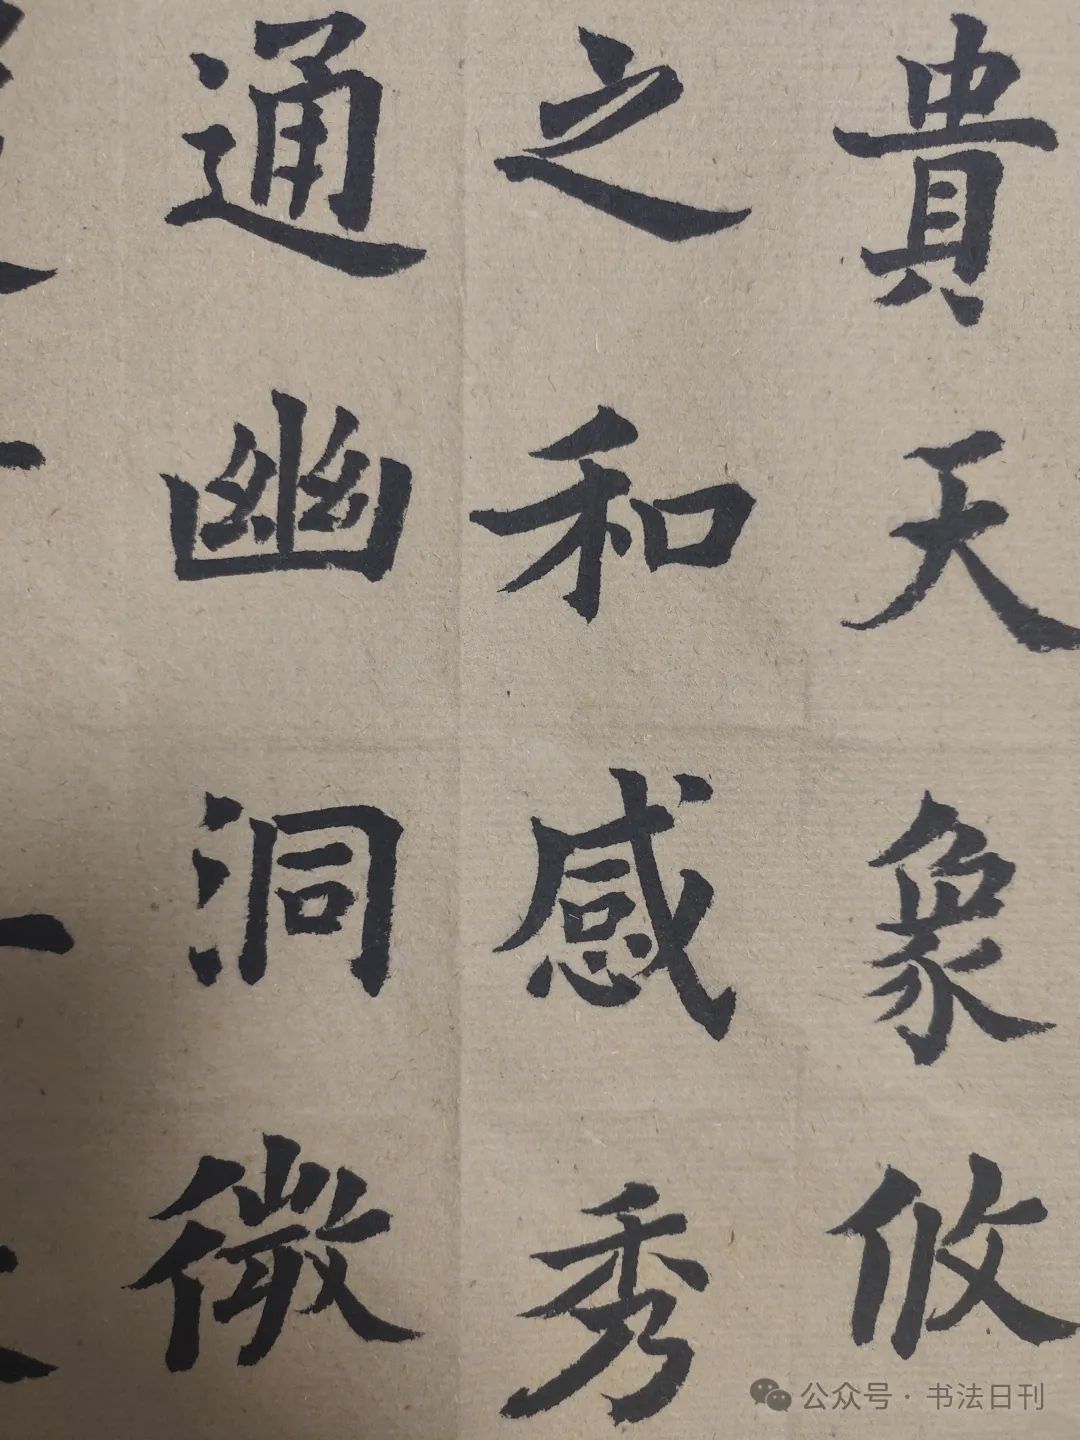 貴天象攸
之和感秀
通幽洞微
公众号·书法日刊